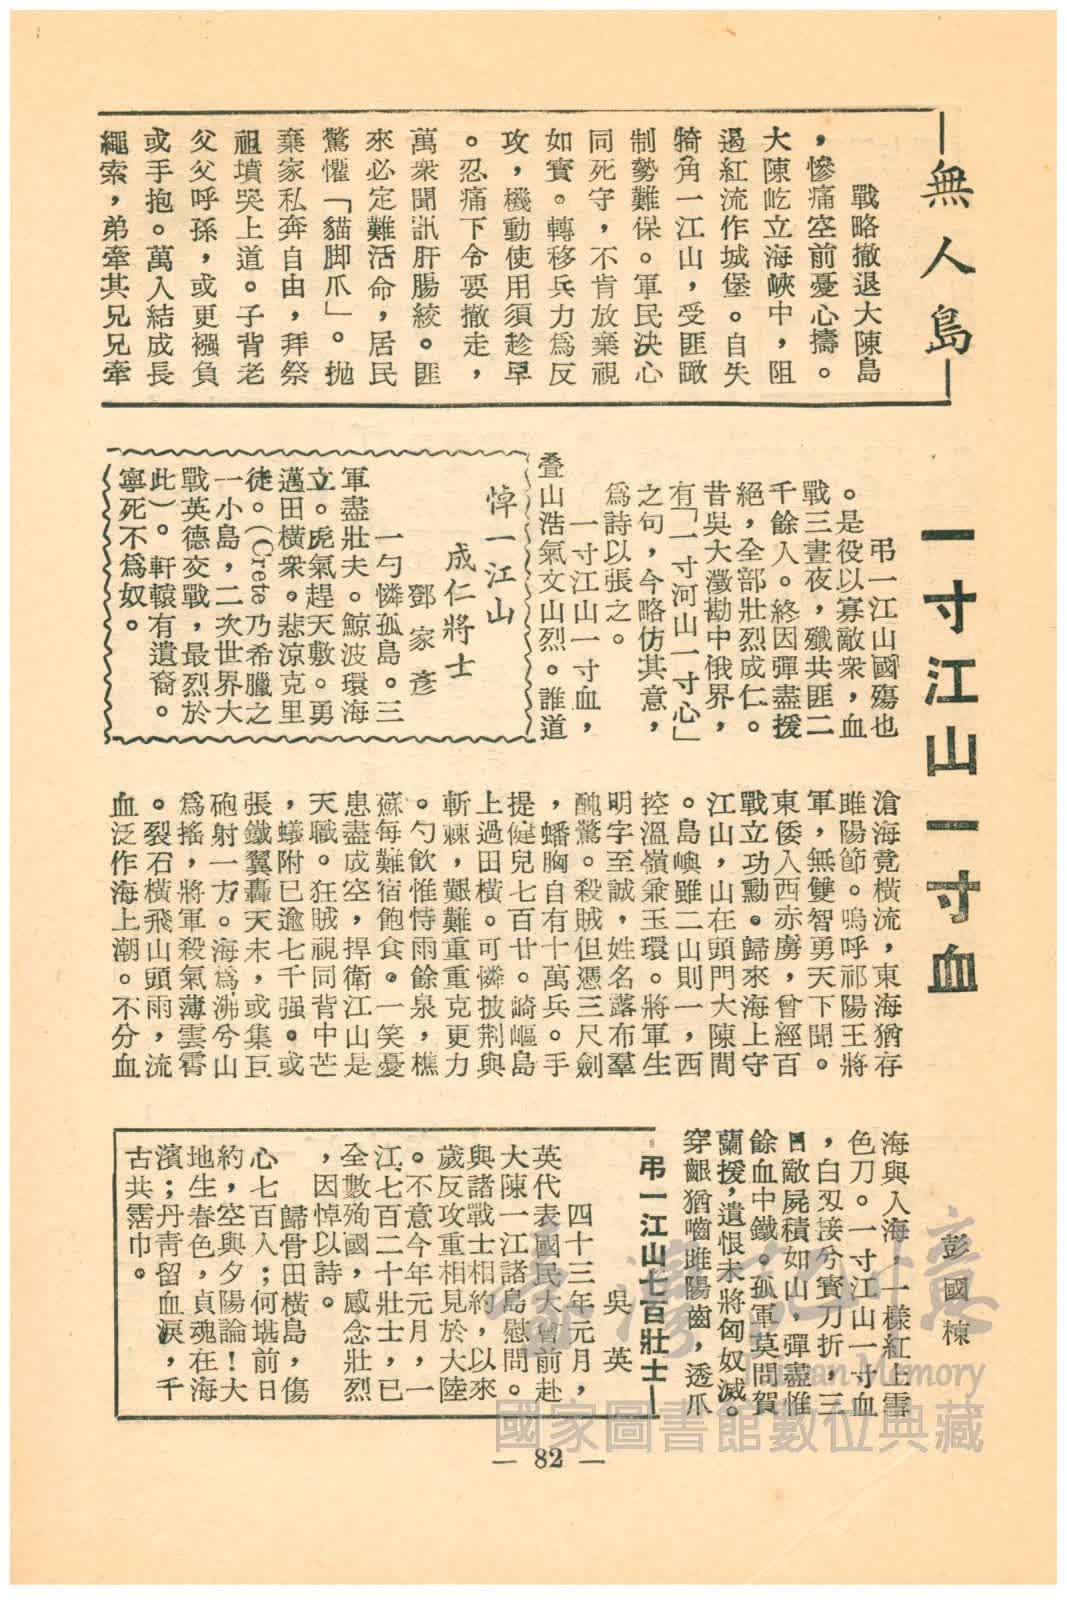 無人島
戰略撤退大陳島
，慘痛空前憂心擣。
大陳屹立海峽中，阻
遏紅流作城堡。自失
犄角一江山，受匪瞰
制勢難保。軍民決心
同死守，不肯放棄視
如實。轉移兵力爲反
攻，機動使用須趁早
。忍痛下令要撤走，
萬衆聞訊肝腸絞。匪
來必定難活命，居民
驚懼「貓脚爪」。抛
棄家私奔自由，拜祭
祖墳哭上道。子背老
父父呼孫，或更襁負
或手抱。萬人結成長
繩索，弟牽其兄兄牽
一寸江山一寸血
彭國棟
弔一江山國殤也
。是役以寡敵衆，血
戰三晝夜，殲共匪二
千餘人。終因彈盡援
絕，全部壯烈成仁。
昔吳大澂勘中俄界，
有「一寸河山一寸心」
之句，今略仿其意，
爲詩以張之。
一寸江山一寸血，
叠山浩氣文山烈。誰道
滄海竟橫流，東海猶存
睢陽節。嗚呼祁陽王將
軍，無雙智勇天下聞。
東倭入西赤虜，曾經百
戰立功勳。歸來海上守
江山，山在頭門大陳間
。島嶼雖二山則一，西
控溫嶺兼玉環。將軍生
明字至誠，姓名落布羣
醜驚。殺賊但憑三尺劍
，蟠胸自有十萬兵。手
提健兒七百廿。崎嶇島
上過田橫。可憐披荆與
斬棘，艱難重重克更力
。勺飲惟恃雨餘泉，樵
蘇每難宿飽食。一笑憂
患盡成空，捍衛江山是
天職。狂賊視同背中芒
，蟻附已逾七千强。或
張鐵翼轟天末，或集巨
砲射一方。海爲沸兮山
爲搖，將軍殺氣薄雲霄
。裂石橫飛山頭雨，流
血泛作海上潮。不分血
海與人海，一樣紅上雲
色刀。一寸江山一寸血
，白刃接兮寳刀折，三
日敵屍積如山，彈盡惟
餘血中鐵。孤軍莫問賀
蘭援，遺恨未將匈奴滅。
穿齦猶嚙睢陽齒，透爪
悼一江山
成仁將士
鄧家彥
一勺憐孤島。三
軍盡壯夫。鯨波環海
立。虎氣趕天敷。勇
邁田橫衆。悲涼克里
徒。(Crete乃希臘之
一小島，二次世界大
戰英德交戰，最烈於
此)。軒轅有遺裔。
寧死不爲奴。
弔一江山七百壯士
吳英
四十三年元月，
英代表國民大會前赴
大陳一江諸島慰問。
與諸戰士相約，以來
歲反攻重相見於大陸
。不意今年元月，一
江七百二十壯士，已
全數殉國，感念壯烈
，因悼以詩。
歸骨田橫島，傷
心七百人；何堪前日
約，空與夕陽論！大
地生春色，貞魂在海
濱；丹青留血淚，千
古共霑巾。
— 82 —
臺灣記憶
Taiwan Memory
國家圖書館數位典藏